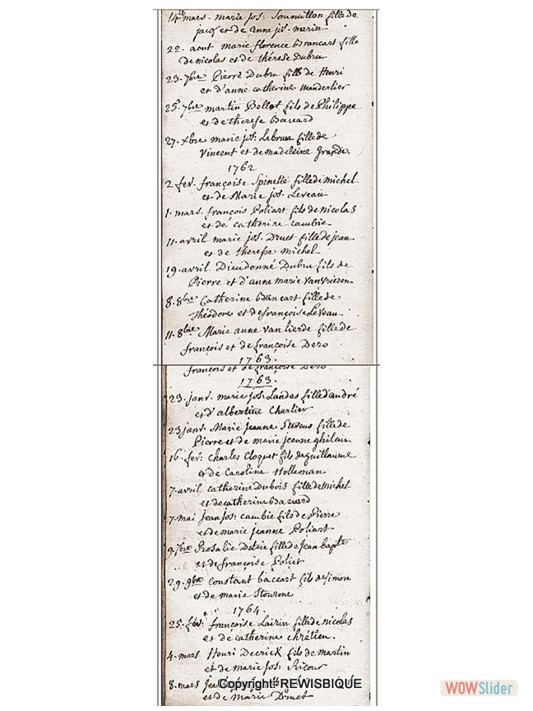 14 mars. marie jos. Soumillon fille de
jacq et de anne jos. marin
22. aout marie florence Brancart fille
de nicolas et de thérèse Dubru
23. 7bre Pierre Dubru fils de Henri
et d'anne catherine Wanderlier
25. 7bre martin Bellot fils de Philippe
et de therese Baccard
27. xbre marie jos. Lebrun fille de
Vincent et de madeleine
1762
2 fev. françoise Spinette fille de michel
et de Marie jos. Leveau
1. mars. françois Poliart fils de nicolas
et de catherine cambie
11. avril marie jos. Druet fille de jean
et de therese michel
19. avril Dieudonné Dubru fils de
Pierre et d'anne marie
8. 8bre Catherine Brancart fille de
théodore et de françoise Leveau
11. 8bre Marie anne van lierde fille de
françois et de françoise Dero
1763.
françois et de françoise Dero
1763.
23. janv. marie jos. Landas fille d'andré
et d'albertine Charlier
23 janv. Marie Jeanne fille de
Pierre et de marie jeanne ghilain
16 fev: Charles Cloquet fils de guillaume
et de Caroline Holleman
7. avril catherine Dubois fille de Michel
et de catherine
7. mai jean jos: cambie fils de Pierre
et de marie jeanne Poliart
9. 7bre Rosalie fille de Jean bapte
et de françoise Poliet
29. 9bre constant baccart fils de simon
et de marie
1764.
25. françoise Lairin fille de nicolas
et de catherine chrétien.
4. mars Henri Decrick fils de martin
et de marie Jos: Ricour
8. mars
et de Marie Druet
Copyright-REWISBIQUE
WOWSlider